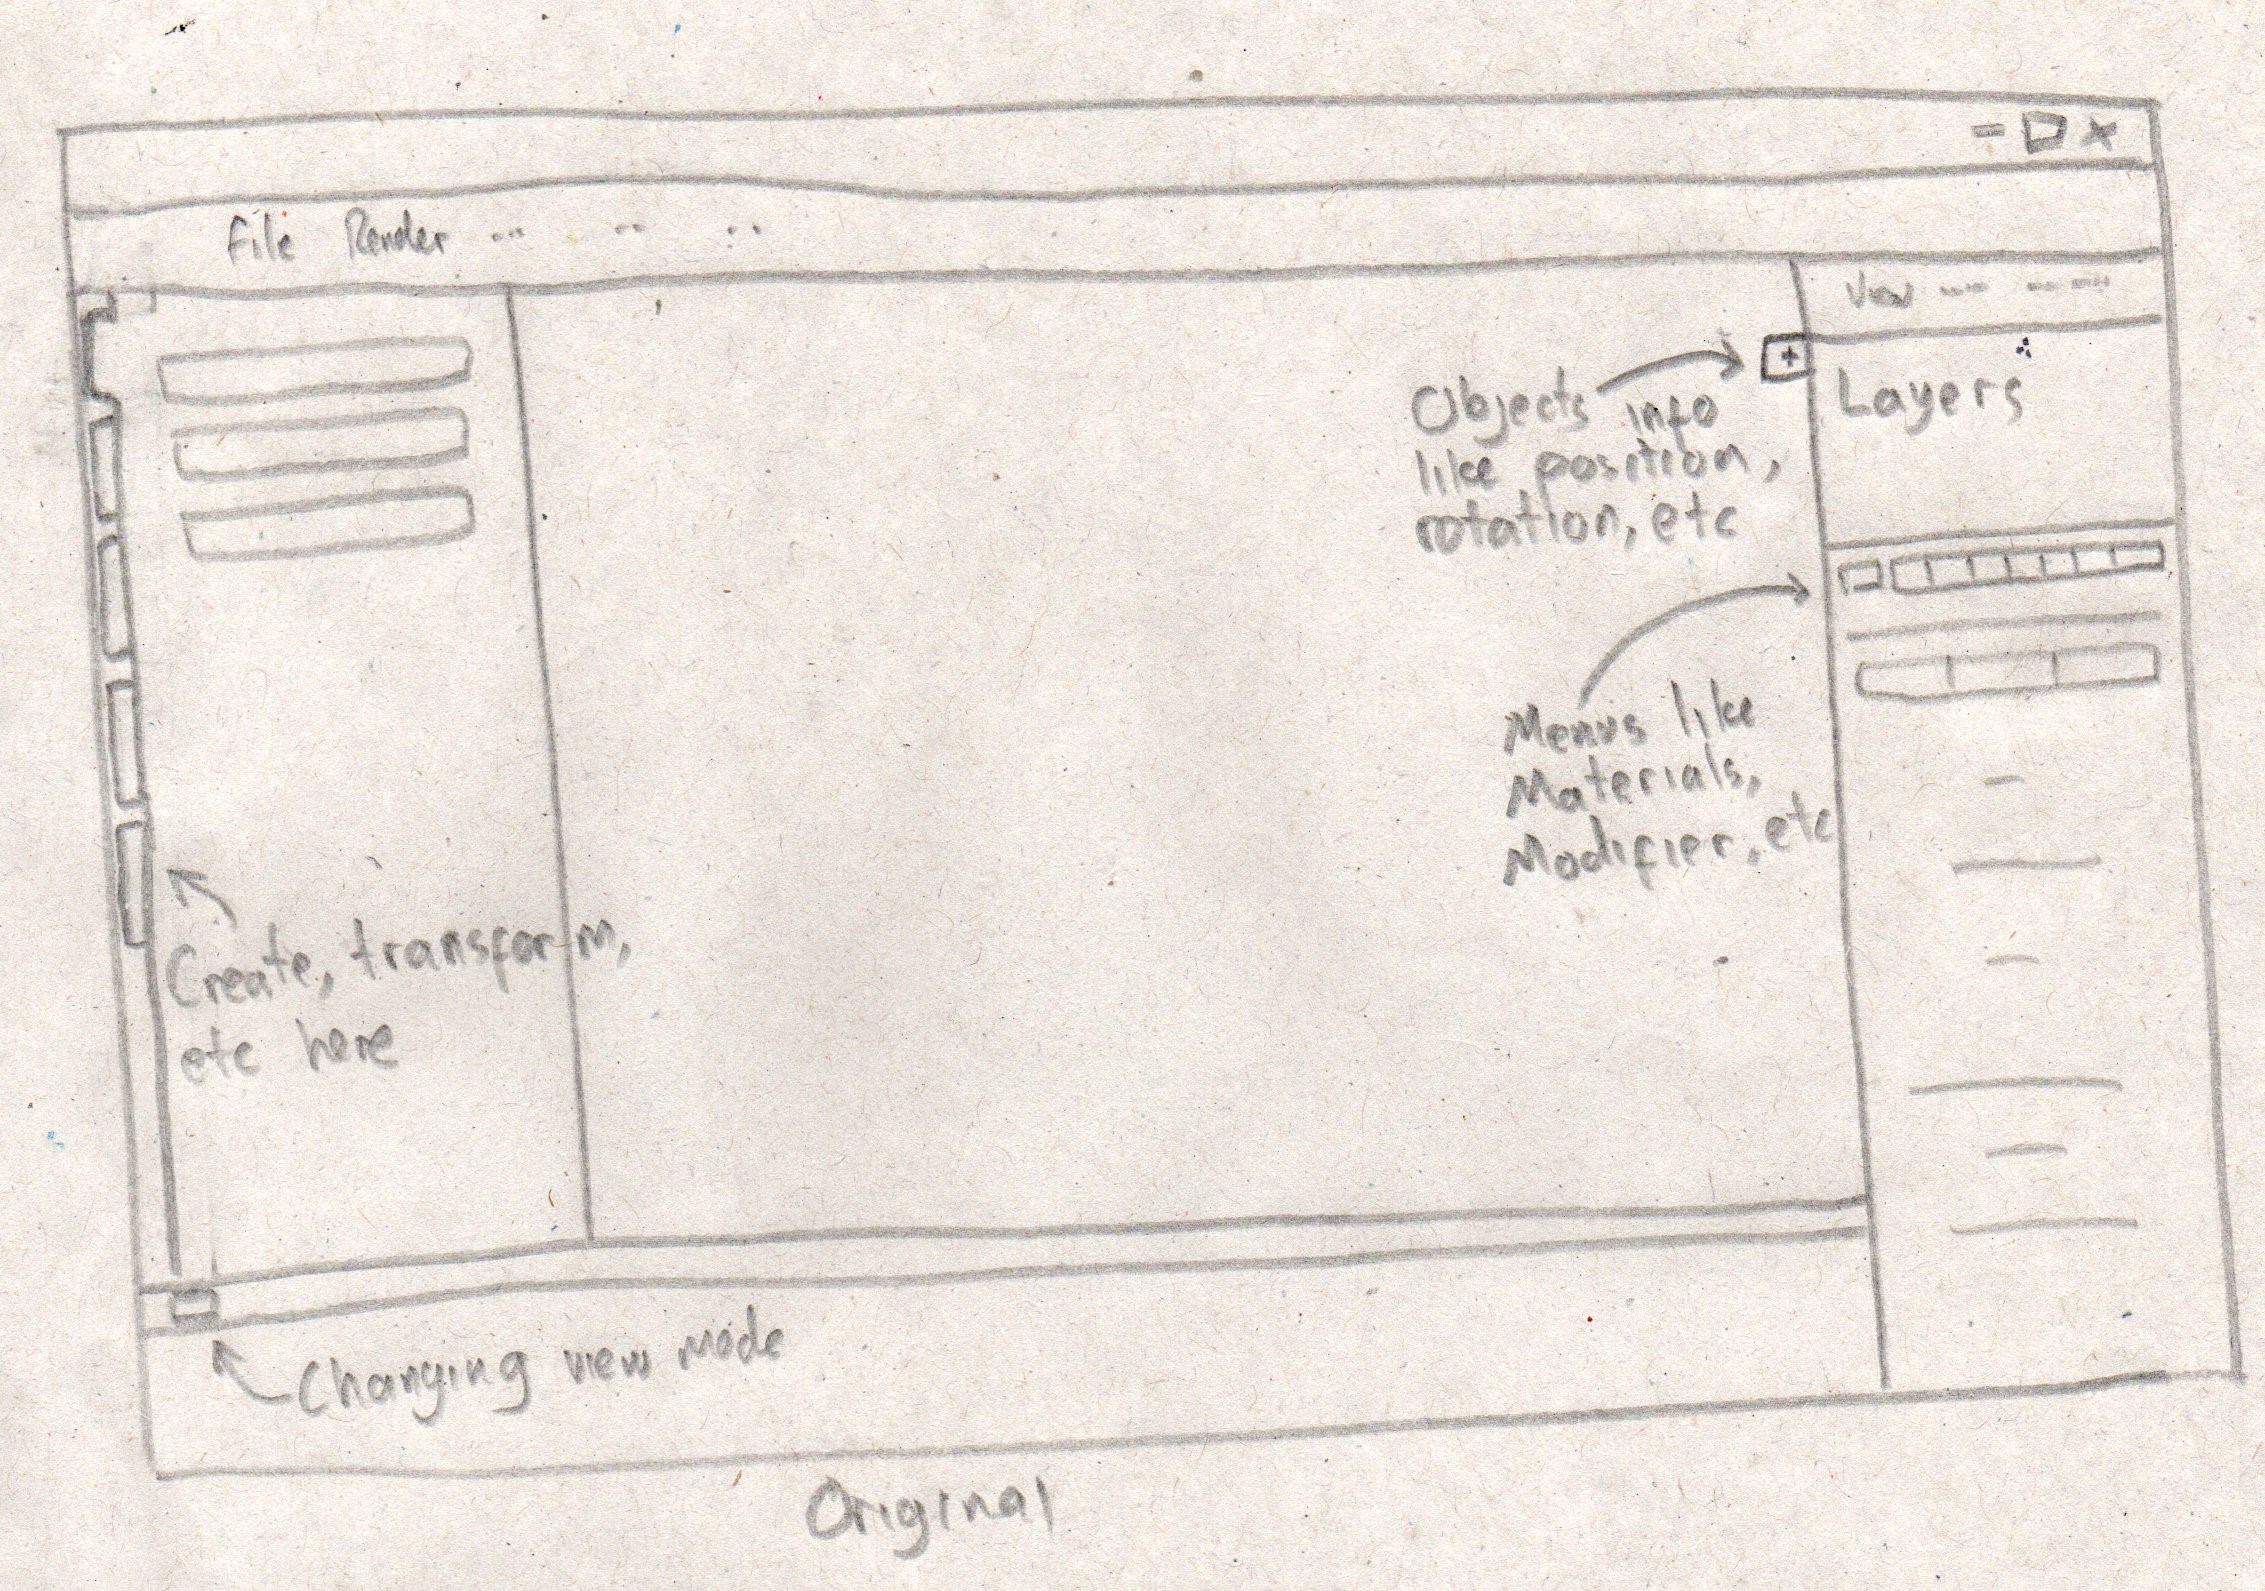 File Render ... .. ..
View
Layers
Objects info
like position,
rotation, etc
Menus like
Materials,
Modifier, etc
Create, transform,
etc here
Changing view mode
Original